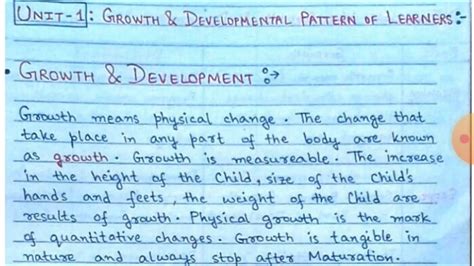 UNIT-1: GROWTH & DEVELOPMENTAL PATTERN OF LEARNERS:-
• GROWTH & DEVELOPMENT :→
Growth means physical change. The change that
take place in any part of the body are known
as growth. Growth is measureable. The increase
in the height of the child, size of the child's
hands and feets, the weight of the child are
results of growth. Physical growth is the mark
of quantitative changes. Growth is tangible in
nature and always stop after Maturation.